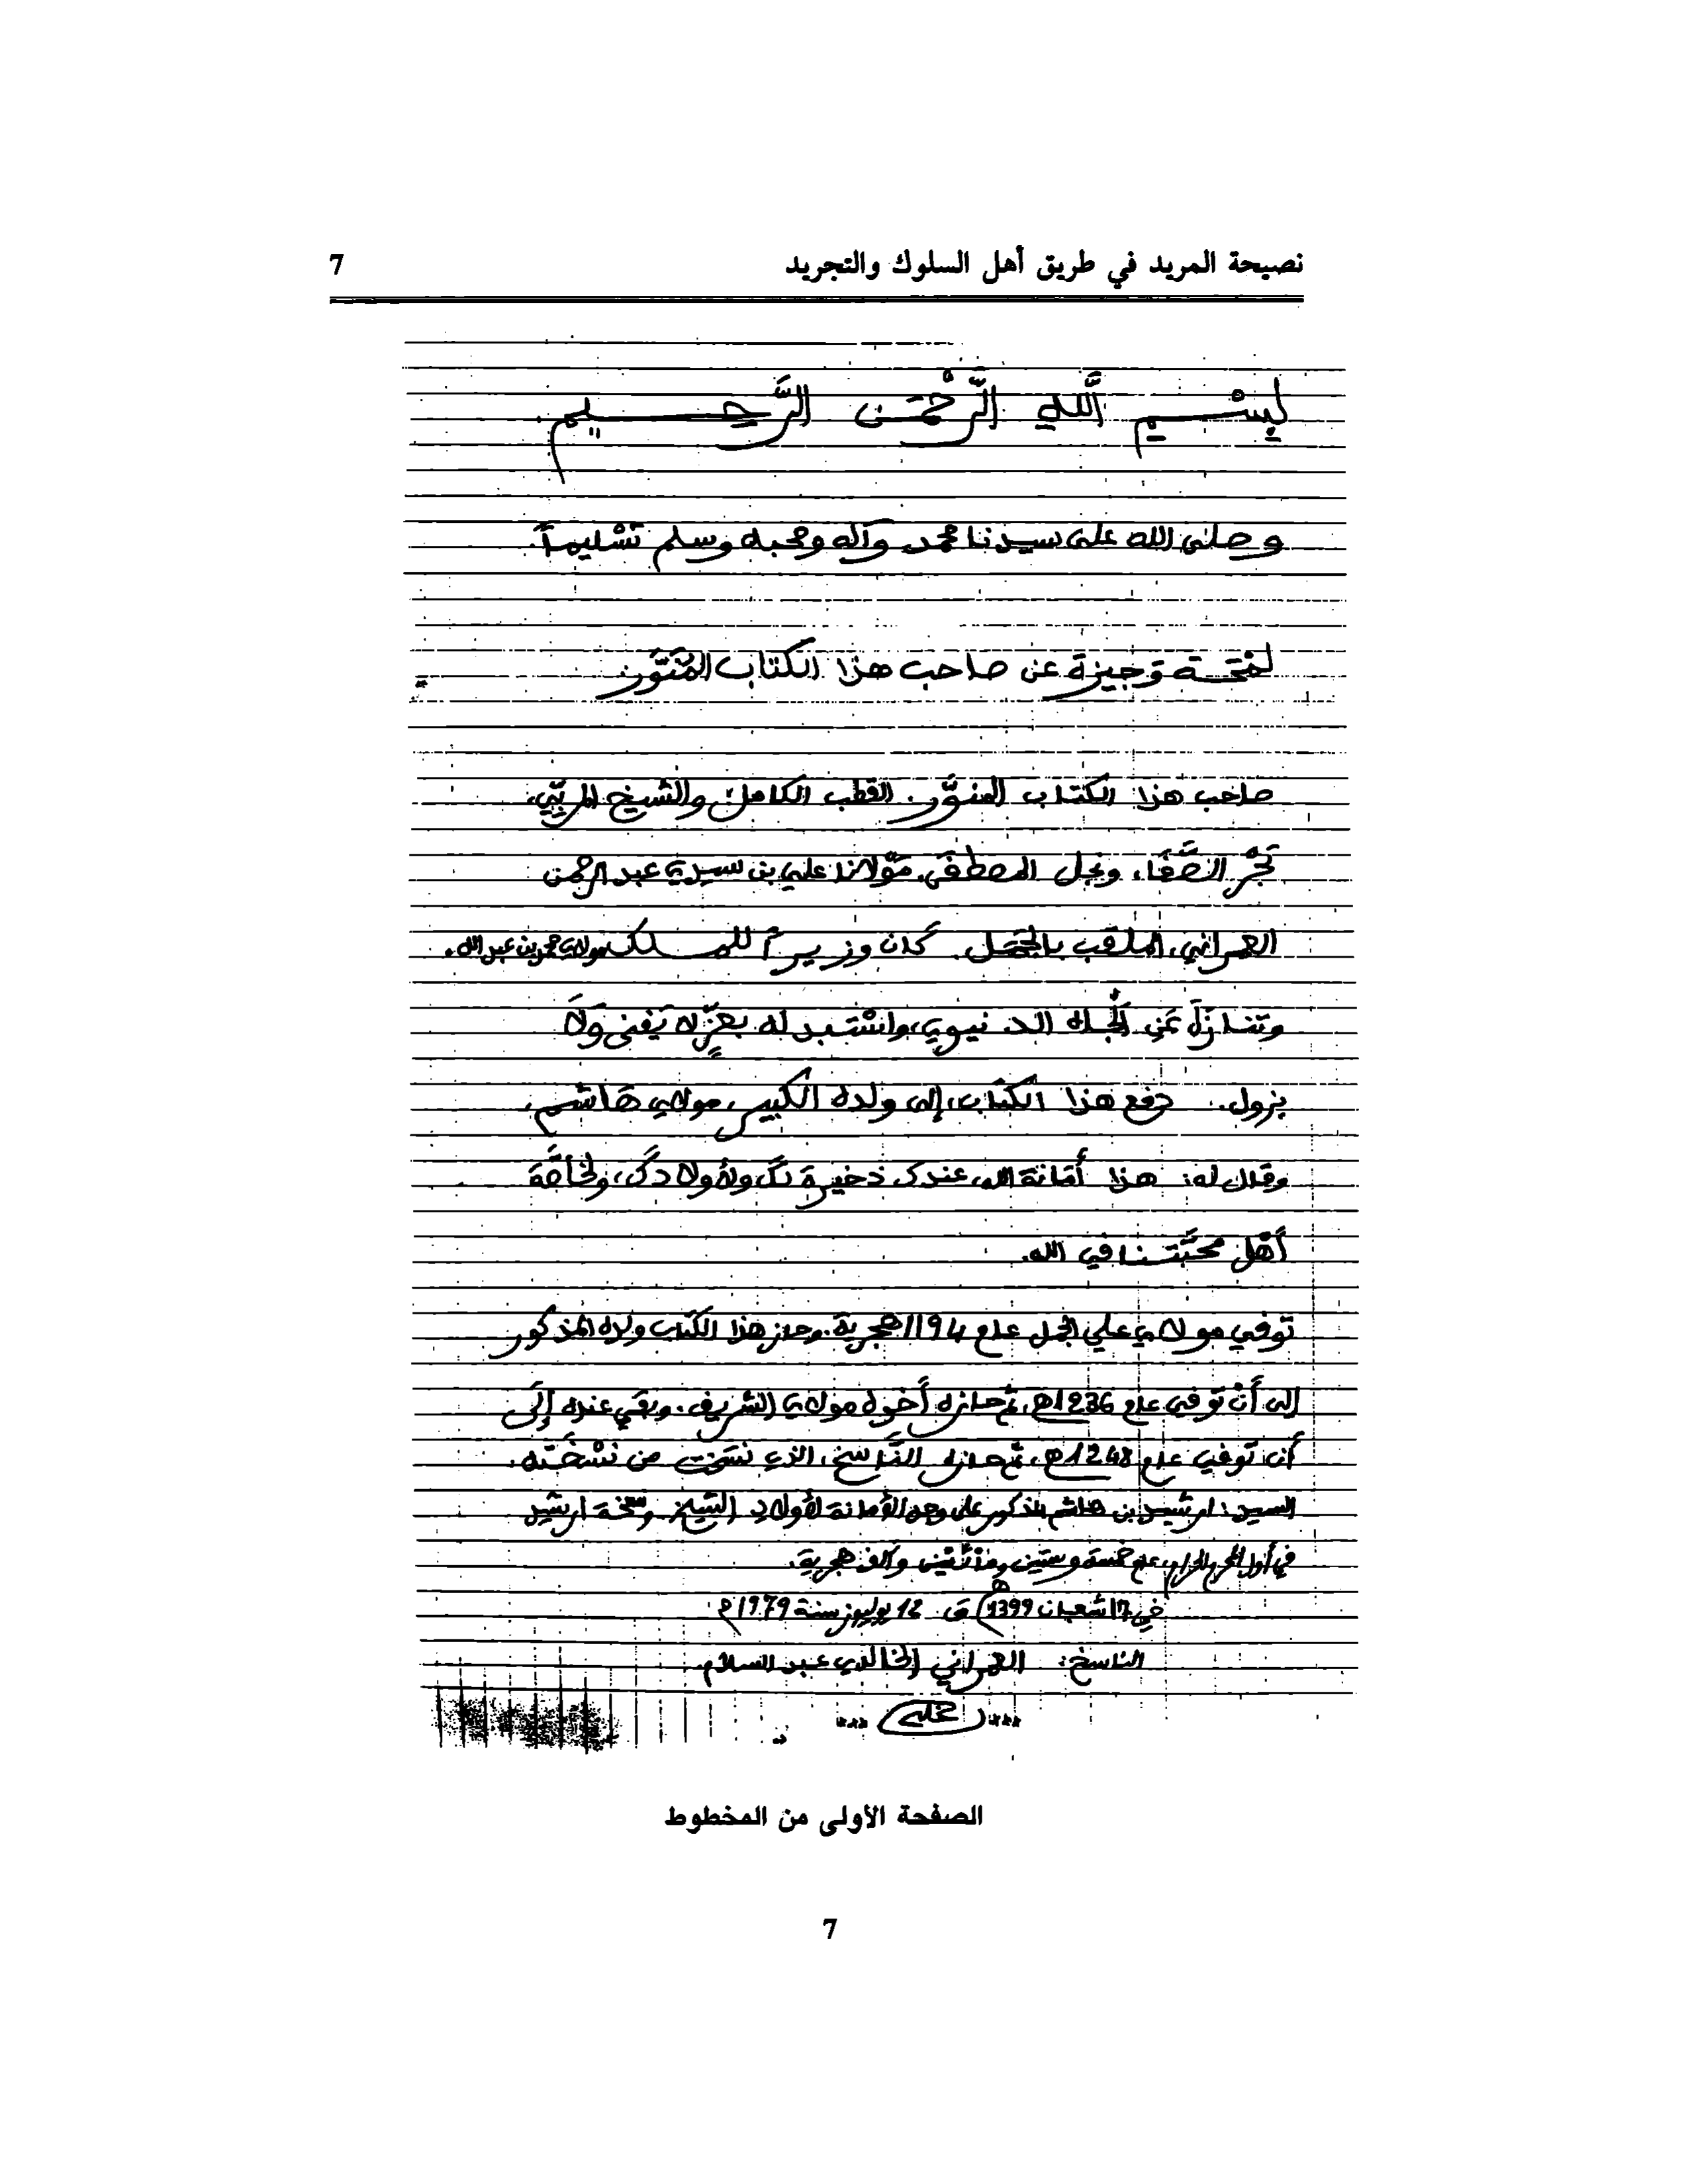 نصيحة المريد في طريق أهل السلوك والتجريد 7
بِسْمِ اللَّهِ الرَّحْمَنِ الرَّحِيمِ
وصلى الله على سيدنا محمد وآله وصحبه وسلم تسليماً.
لمحة وجيزة عن صاحب هذا الكتاب المنَوَّر
صاحب هذا الكتاب المنوَّر. القطب الكامل، والشيخ المربّي،
الصَّفَا، ونجل المصطفى، مَوْلانا علي بن سيدي عبد الرحمن
العمراني، الملقب بالجمَل. كان وزير للملك مولاي محمد بن عبد الله.
وتنازَلَ عَنِ الجاه الدنيوي، واسْتبدله بعِزّ لا يَفنى وَلَا
يزول. دفع هذا الكتاب، إلى ولده الكبير، مولاي هَاشم،
وقال له: هذا أمَانة الله، عندك ذخيرة لك ولأولادك، ولخاصَّة
أَهْل محبَّتنا في الله.
توفي مولاي علي الجمل عام 1194 هجرية. وحاز هذا الكتاب ولده المذكور
إلى أنْ توفي عام 1236هـ، ثم حازه أخوه مولاي الشريف. وبقي عنده إلَى
أن توفي عام 1248هـ، ثم حازه النَّاسخ، الذي نسَخت من نُسْخَته.
السيد: ارشيد بن هاشم المذكور على وجه الأمانة لأولاد الشيخ. ونسخه ارشيد
في أول المحرم الحرام، عام خمسة وستين ومائتين وألف هجرية.
في 17 شعبان 1399هـ 12 يوليوز سنة 1979م
الناسخ: العمراني الخالدي عبد السلام.
الصفحة الأولى من المخطوط
7